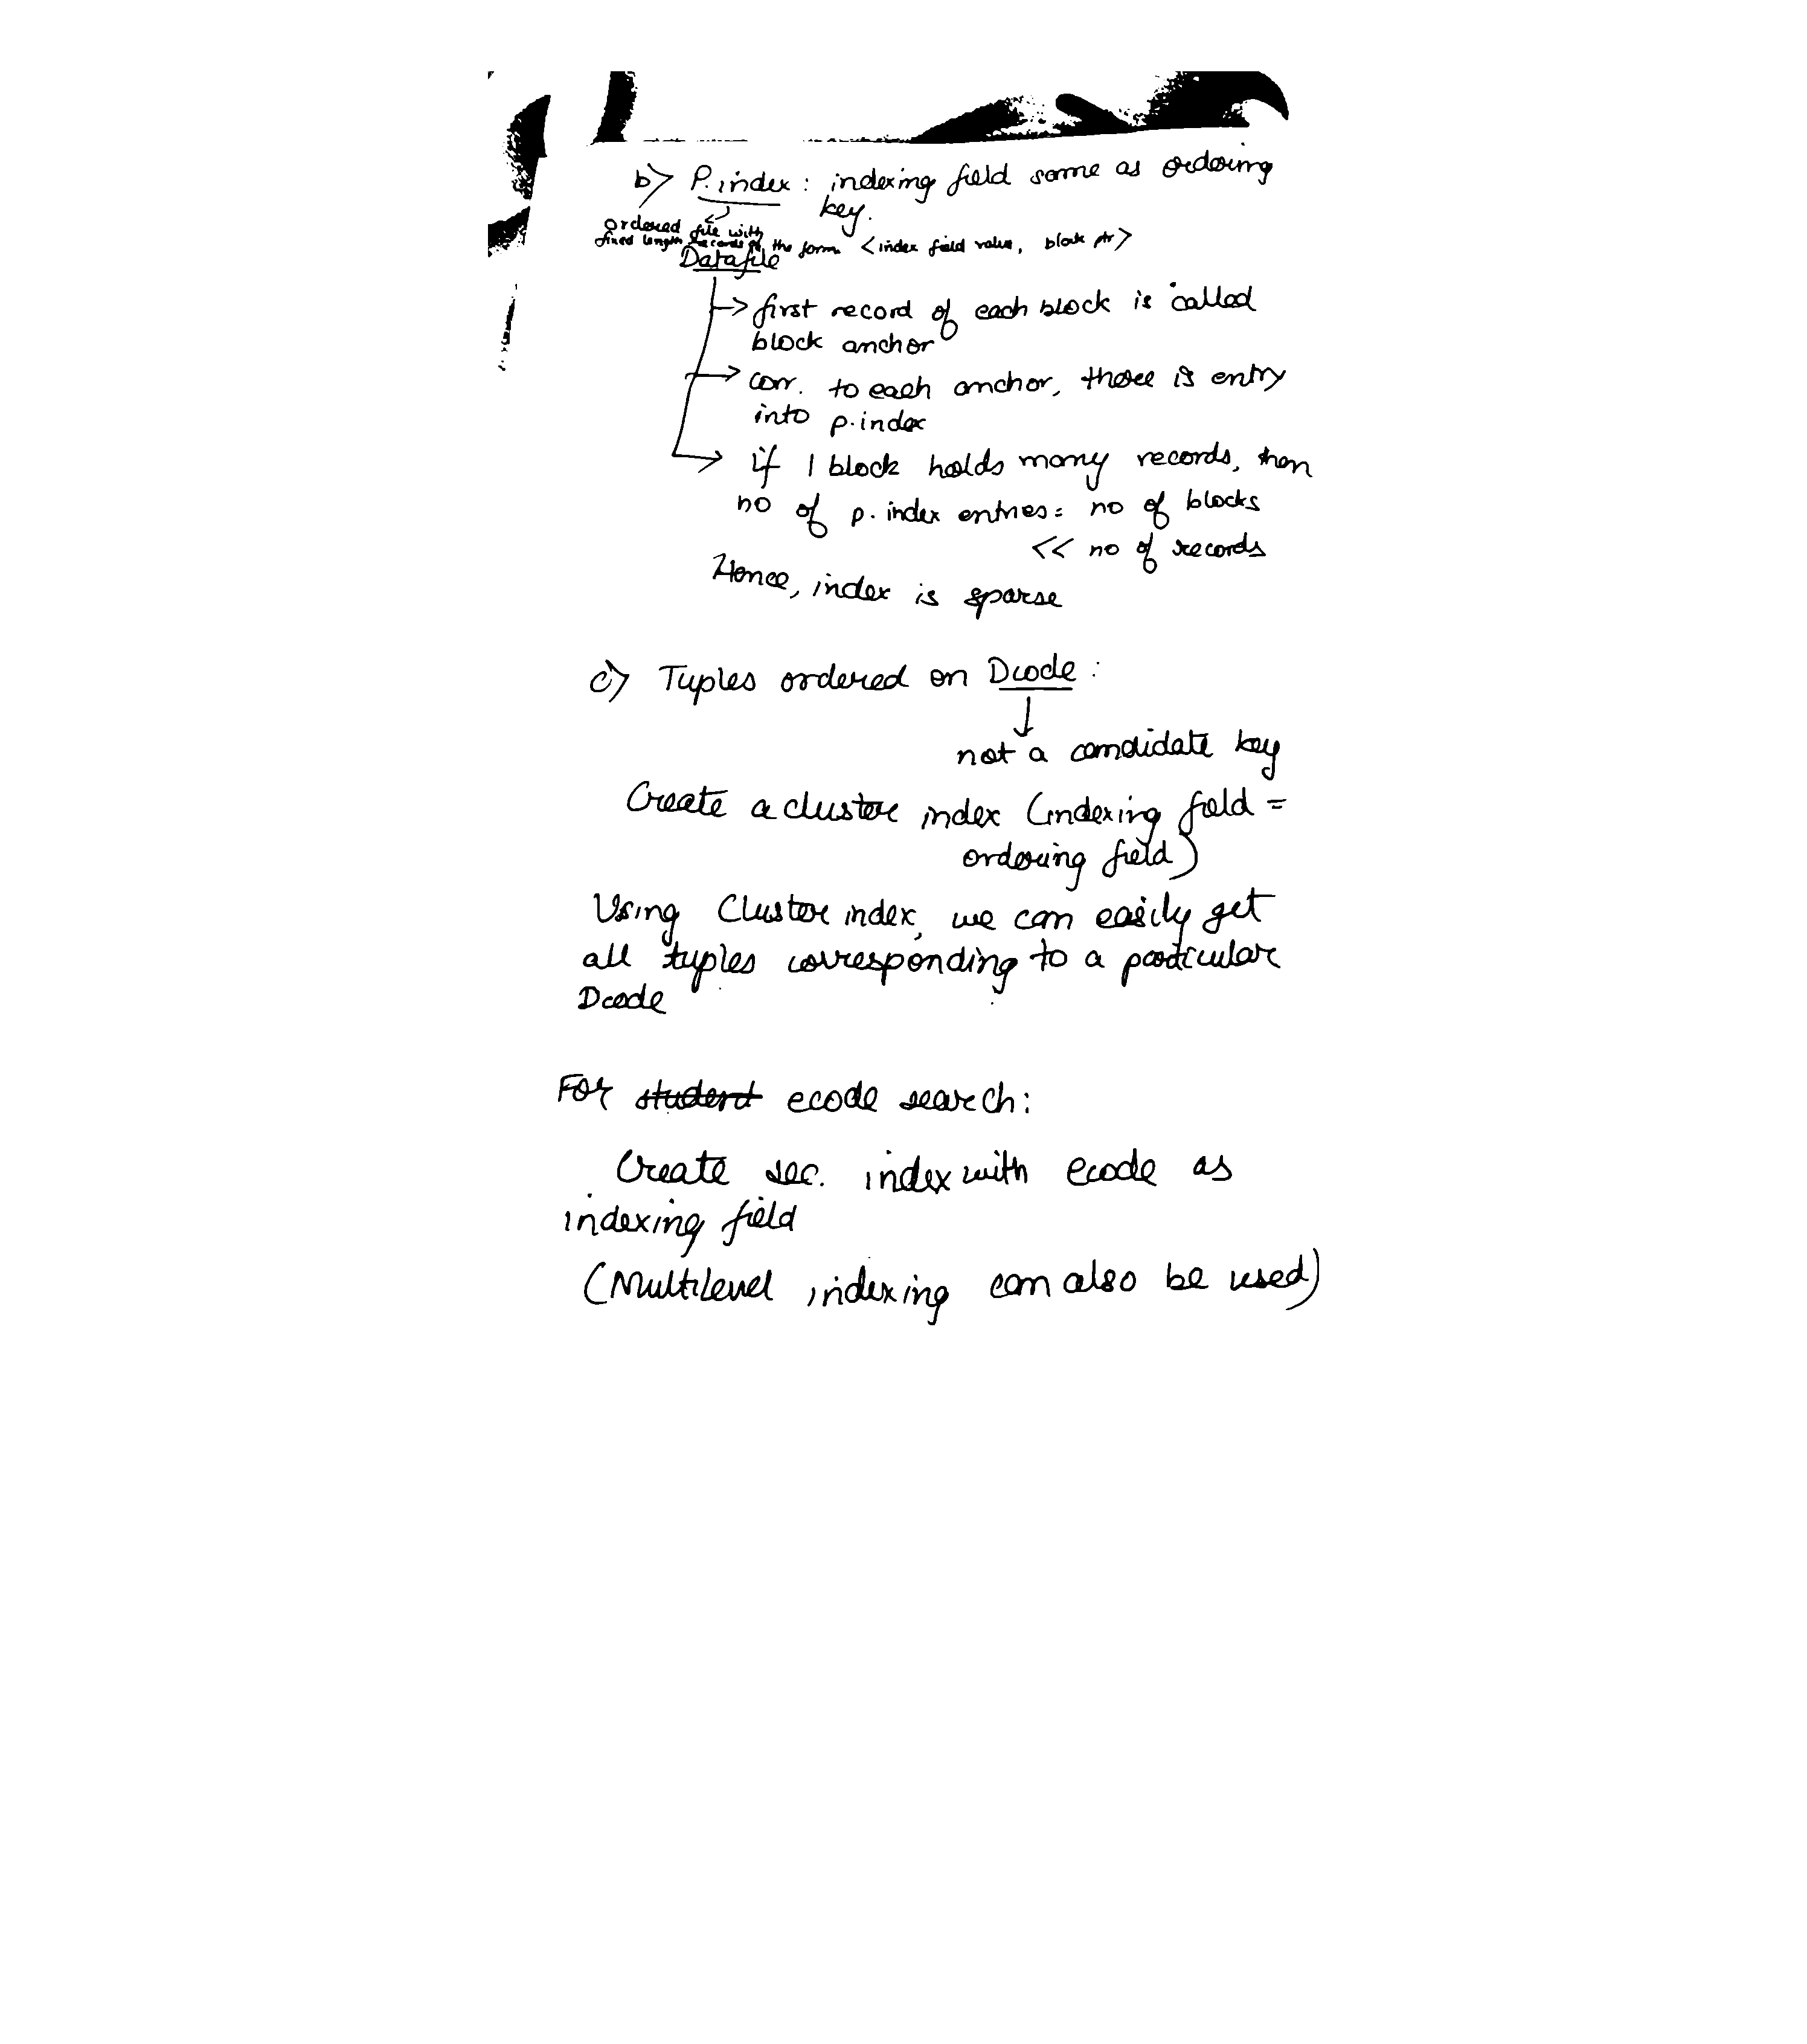 b) P. index : indexing field same as ordering
key.
ordered file with
fixed length records of the form <index field value, block ptr>
Datafile
→ first record of each block is called
block anchor
→ corr. to each anchor, there is entry
into p.index
→ if 1 block holds many records, then
no of p. index entries = no of blocks
<< no of records
Hence, index is sparse
c) Tuples ordered on Dcode :
↓
not a candidate key
Create a cluster index (indexing field =
ordering field)
Using Cluster index, we can easily get
all tuples corresponding to a particular
Dcode
For student ecode search:
Create sec. index with ecode as
indexing field
(Multilevel indexing can also be used)